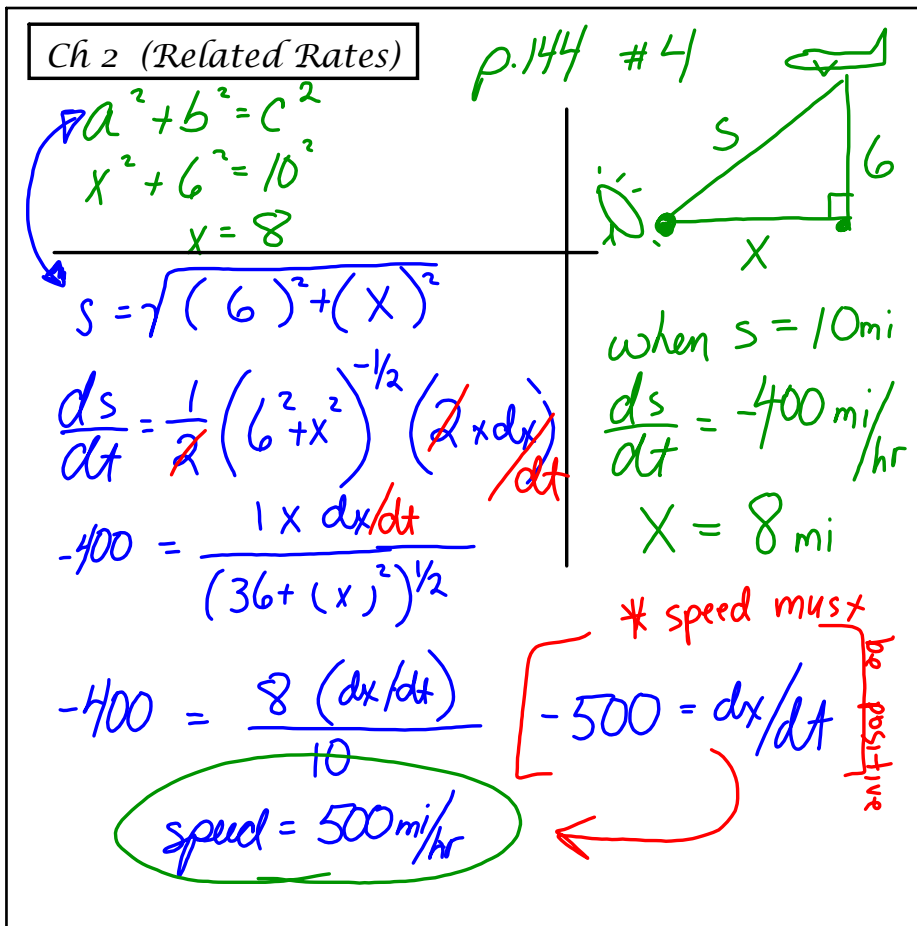 Ch 2 (Related Rates)
p.144 #4
a² + b² = c²
x² + 6² = 10²
x = 8
S
6
X
s = √(( 6 )² + ( x )²)
ds/dt = 1/2 (6² + x²)^(-1/2) (2 x dx/dt)
-400 = 1 x dx/dt / (36 + (x)²)^(1/2)
-400 = 8 (dx/dt) / 10
when s = 10 mi
ds/dt = -400 mi/hr
X = 8 mi
* speed must be positive
-500 = dx/dt
speed = 500 mi/hr